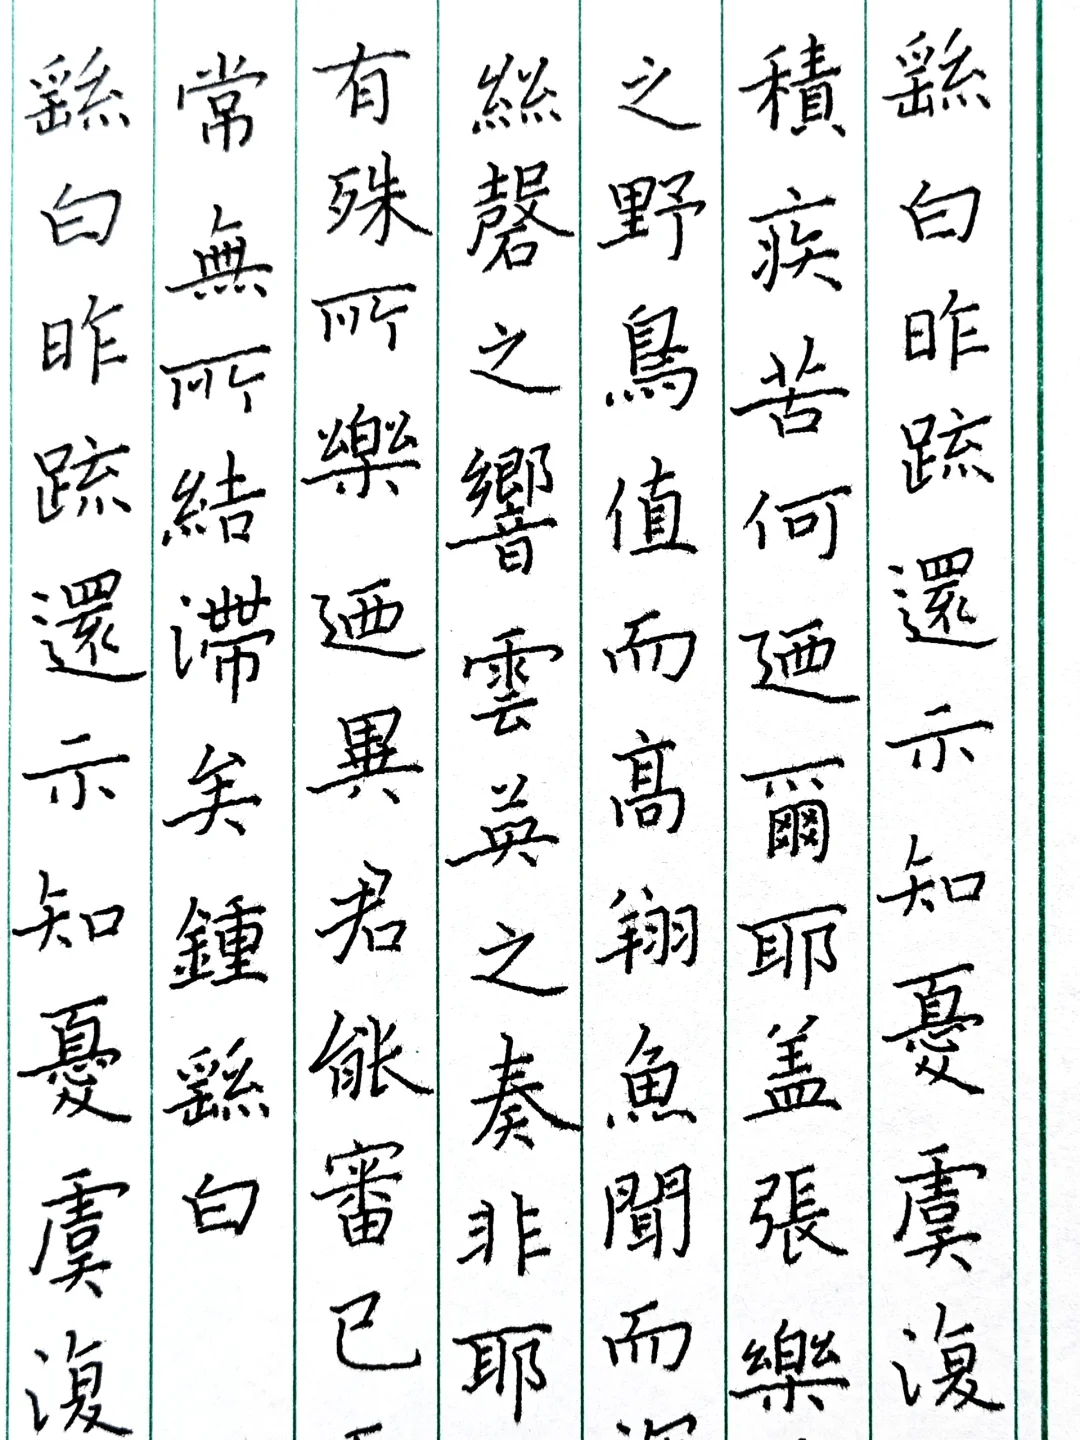 繇白昨疏還示知憂虞復
積疾苦何迺爾耶盖張樂
之野鳥值而高翔魚聞而
絲磬之響雲英之奏非耶
有殊所樂迺異君能審已
常無所結滯矣鍾繇白
繇白昨疏還示知憂虞復